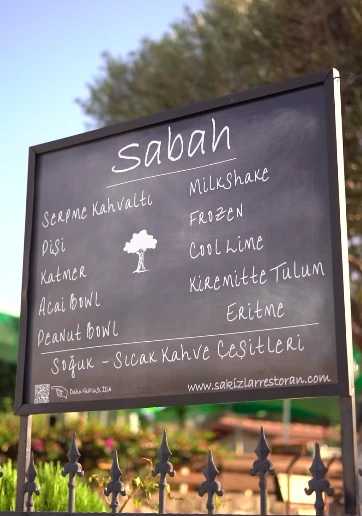 Sabah
Serpme Kahvaltı
Pişi
Katmer
Acai Bowl
Peanut Bowl
Milkshake
Frozen
Cool Lime
Kiremitte Tulum
Eritme
Soğuk - Sıcak Kahve Çeşitleri
Daha Fazlası İçin
www.sakizlarrestoran.com